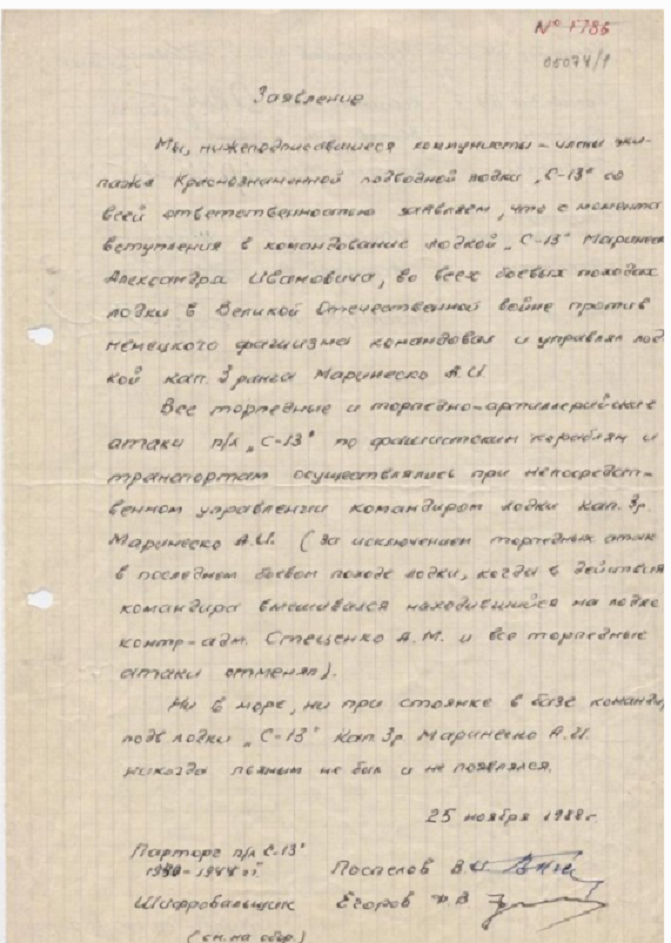 № 1786
05074/1
Заявление
Мы, нижеподписавшиеся коммунисты – члены эки-
пажа Краснознаменной подводной лодки „С-13" со
всей ответственностью заявляем, что с момента
вступления в командование лодкой „С-13" Маринеско
Александра Ивановича, во всех боевых походах
лодки в Великой Отечественной войне против
немецкого фашизма командовал и управлял лод-
кой кап. 3 ранга Маринеско А.И.
Все торпедные и торпедно-артиллерийские
атаки п/л „С-13" по фашистским кораблям и
транспортам осуществлялись при непосредст-
венном управлении командиром лодки кап. 3р.
Маринеско А.И. (За исключением торпедных атак
в последнем боевом походе лодки, когда в действия
командира вмешивался находившийся на лодке
контр-адм. Стеценко А.М. и все торпедные
атаки отменял).
Ни в море, ни при стоянке в базе командир
подв лодки „С-13" Кап. 3р Маринеско А.И.
никогда пьяным не был и не появлялся.
25 ноября 1988г.
Парторг п/л С-13"
Поспелов В.И.
Шифровальщик Егоров
(см. на обор.)